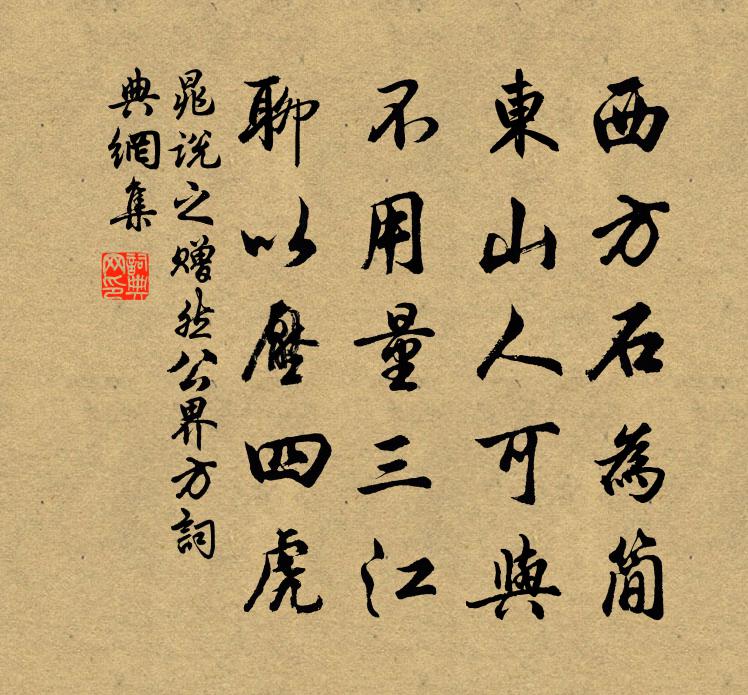 西方石為簡
東山人可與
不用量三江
聊以壓四虎
晁说之赠然公界方詞
典網集
詞典
网印